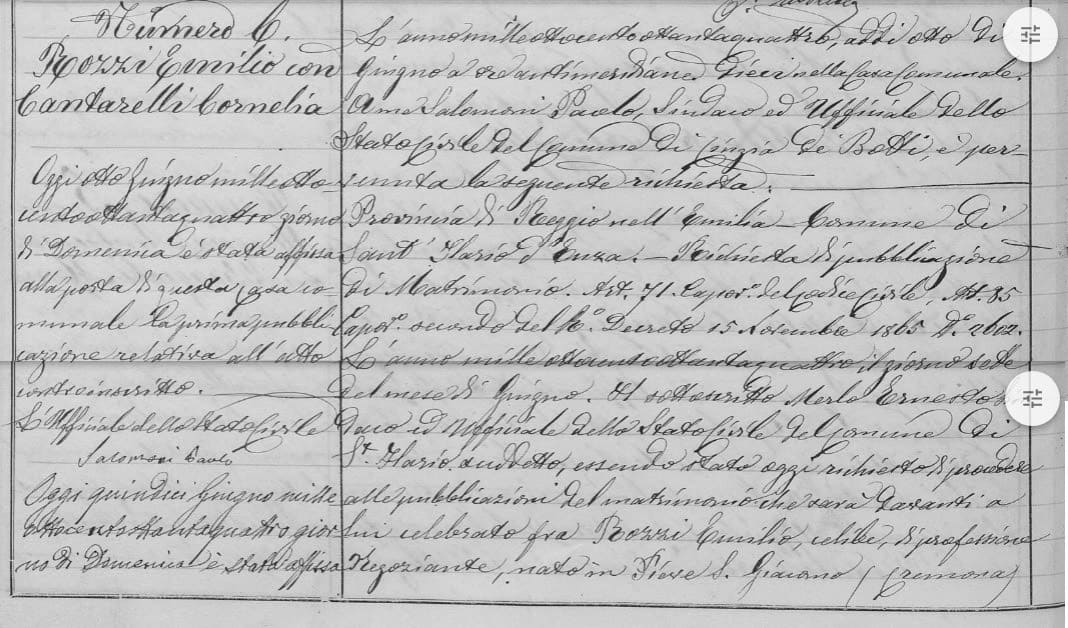 Numero 6.
Rozzi Emilio con
Cantarelli Cornelia
Oggi otto Giugno mille otto-
cento ottantaquattro giorno
di Domenica è stata affissa
alla porta di questa casa co-
munale la prima pubbli-
cazione relativa all'atto
controinscritto.
L'Uffiziale dello Stato Civile
Salomoni Paolo
Oggi quindici Giugno mille
ottocento ottantaquattro gior-
no di Domenica è stata affissa
L'anno mille ottocento ottantaquattro, addì otto di
Giugno a ore antimeridiane dieci nella Casa Comunale.
A me Salomoni Paolo, Sindaco ed Uffiziale dello
Stato Civile del Comune di de' Botti, è per-
venuta la seguente richiesta.
Provincia di Reggio nell'Emilia - Comune di
Sant'Ilario d'Enza. - Richiesta di pubblicazione
di Matrimonio. Art. 71. Capov.° del Codice Civile, Art. 85
Capov.° secondo del R.° Decreto 15 Novembre 1865 N.° 2602.
L'anno mille ottocento ottantaquattro il giorno sette
del mese di Giugno. Il sottoscritto Merlo Ernesto Sin-
daco ed Uffiziale dello Stato Civile del Comune di
St. Ilario suddetto, essendo stato oggi richiesto di procedere
alle pubblicazioni del matrimonio che sarà davanti a
lui celebrato fra Rozzi Emilio, celibe, di professione
Negoziante, nato in Pieve S. Giacomo (Cremona)